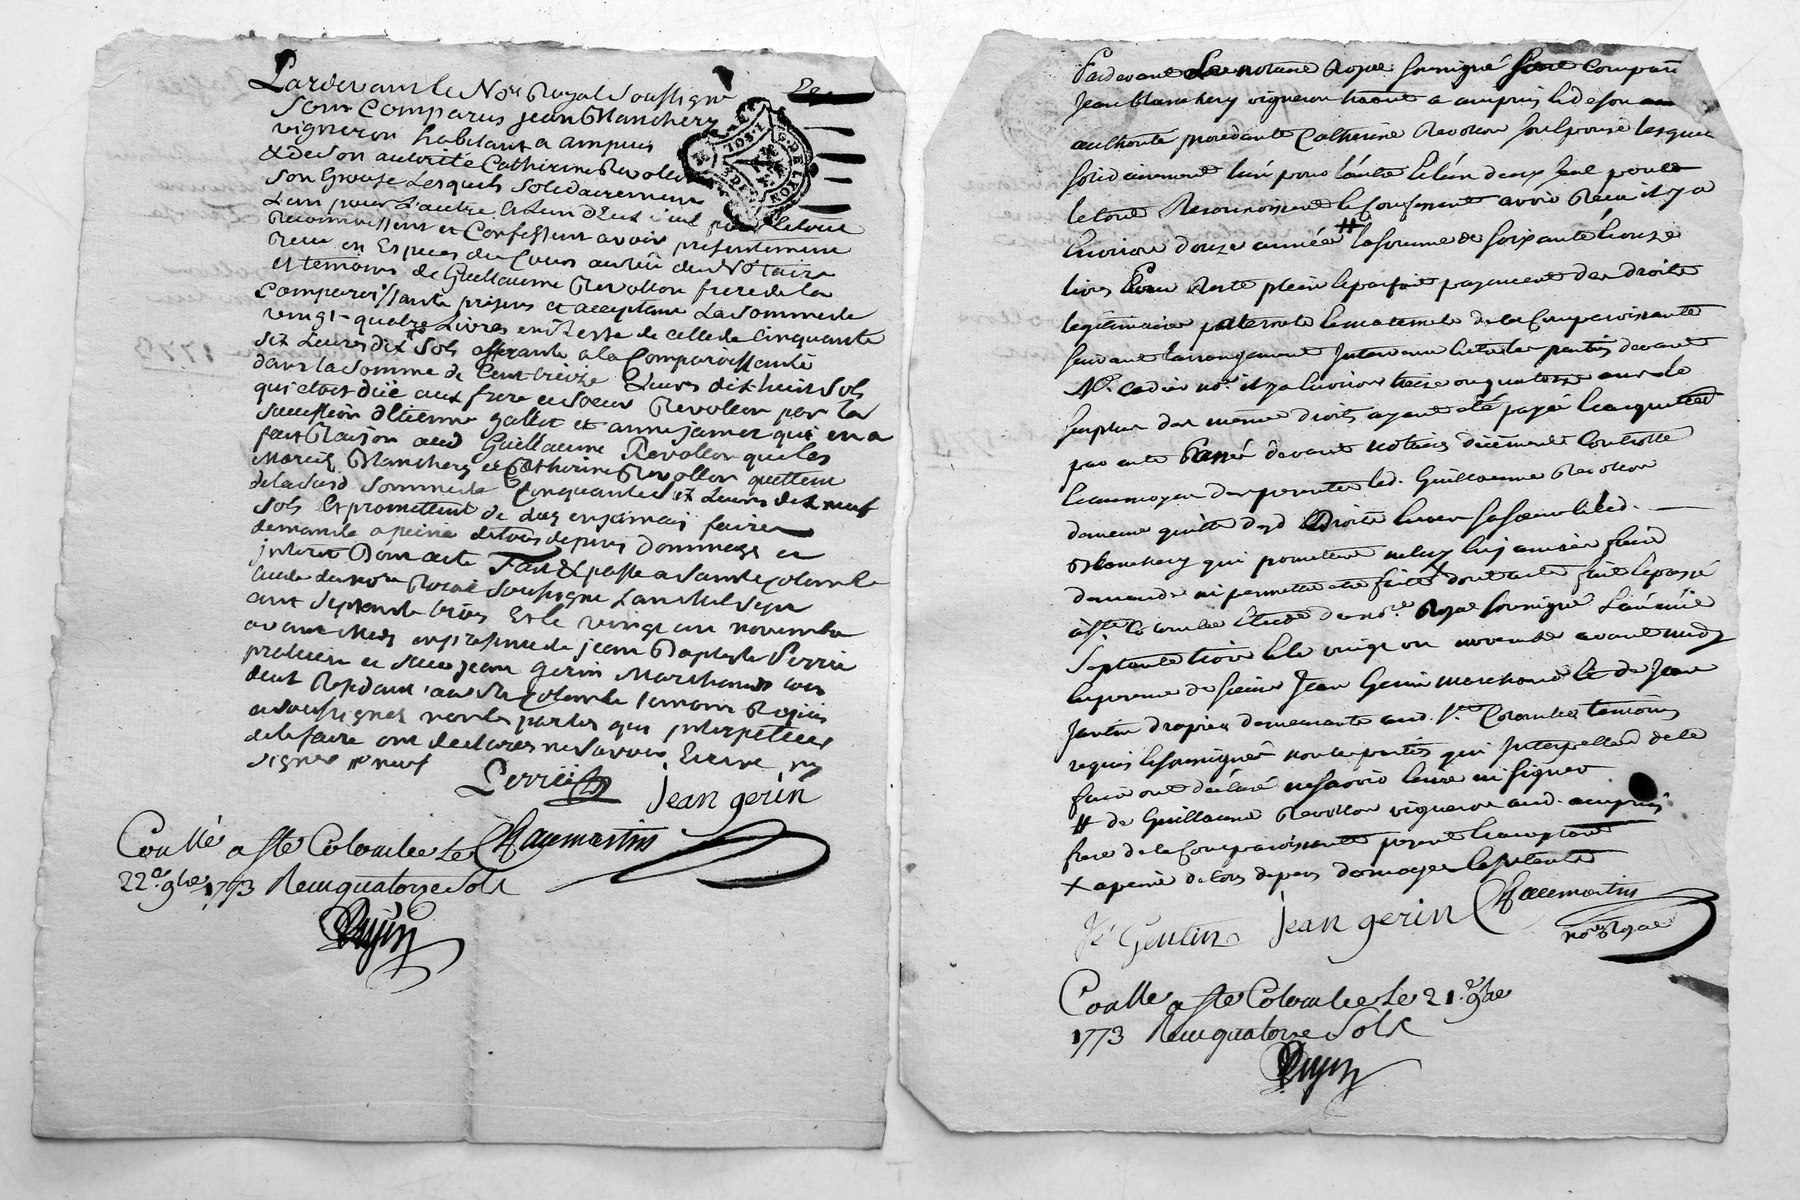 Pardevant le Nore Royal Soussigné
Sont Comparus jean Blanchery
vigneron habitant a ampuis
& de Son autorité Catherine Revollon
Son Epouse Lesquels Solidairement
L'un pour L'autre et L'un d'Eux Seul pour le tout
Reconnoissent et Confessent avoir presentement
Receu en Especes du Cours au veü du Notaire
et temoins de Guillaume Revollon frere de la
Comparoissante present et acceptant La Somme de
vingt-quatre Livres en Reste de celle de Cinquante
Six Livres dix Sols afferante a la Comparoissante
dans la Somme de Cent treize Livres dix huit Sols
qui etoit düe aux frere et Soeur Revollon par la
Succession d'Etienne gallet et anne janier qui en a
fait Raison aud Guillaume Revollon que les
Mariés Blanchery et Catherine Revollon quittent
de lasusd Somme de Cinquante Six Livres dix neuf
Sols et promettent de duy en jamais faire
demande a peine de tous depens dommages et
interet Dont acte Fait & passé a Sainte Colombe
Etude du nore Royal Soussigné L'an Mil Sept
cent Septante trois Et le vingt un novembre
avant Midy en presence de jean Baptiste Perrin
praticien et Sieur jean gerin Marchand tous
deux Residant aud Ste Colombe temoins Requis
et soussignes non les parties qui interpellees
de le faire ont declarés ne Savoir Ecrire ny
Signer
Perrin
jean gerin
Conllé a Ste Colombe Le
22e. 9bre 1773 Receu quatorze Sols
Pardevant Le notaire Royal soussigné Sont Comparu
Jean blanchery vigneron habitt a ampuis & de son
authorité procedante Catherine Revollon son Epouse lesquels
solidairement l'un pour l'autre & l'un deux seul pour le
le tout Reconnoissent & Confessent avoir Receu il y a
Environ douze année # la somme de soixante & onze
livres Pour Reste plein & parfait payement des droits
legitimaires paternels & maternels de la Comparoissante
suivant l'arrangement Intervenu Entre les parties devant
Me. cadier nore. il y a Environ treize ou quatorze ans le
surplus des meme droits ayant été payé & acquitté
par acte Passé devant notaires düement Controllé
au moyen des presentes led. Guillaume Revollon
demeure quitte desd Droits Envers sa soeur & led.
Blanchery qui promettent ne luy en jamais faire
demande ni permettre etre faitte X dont acte fait & passé
a Ste Colombe Etude du nore. Royal soussigné L'année
Septante trois & le vingt un novembre avant midy
En presence de sieur Jean Gerin marchand & de Jean
Jantin drapier demeurants aud. Ste Colombe temoins
requis & soussignés non les parties qui Interpellées de le
faire ont déclaré ne savoir Ecrire ni signer
# de Guillaume Revollon vigneron aud. ampuis
frere de la Comparoissante present & acceptant
X a peine de tous depens domages & Interets
jean gerin
nore Royal
Conllé a Ste Colombe Le 21e. 9bre
1773 Receu quatorze Sols